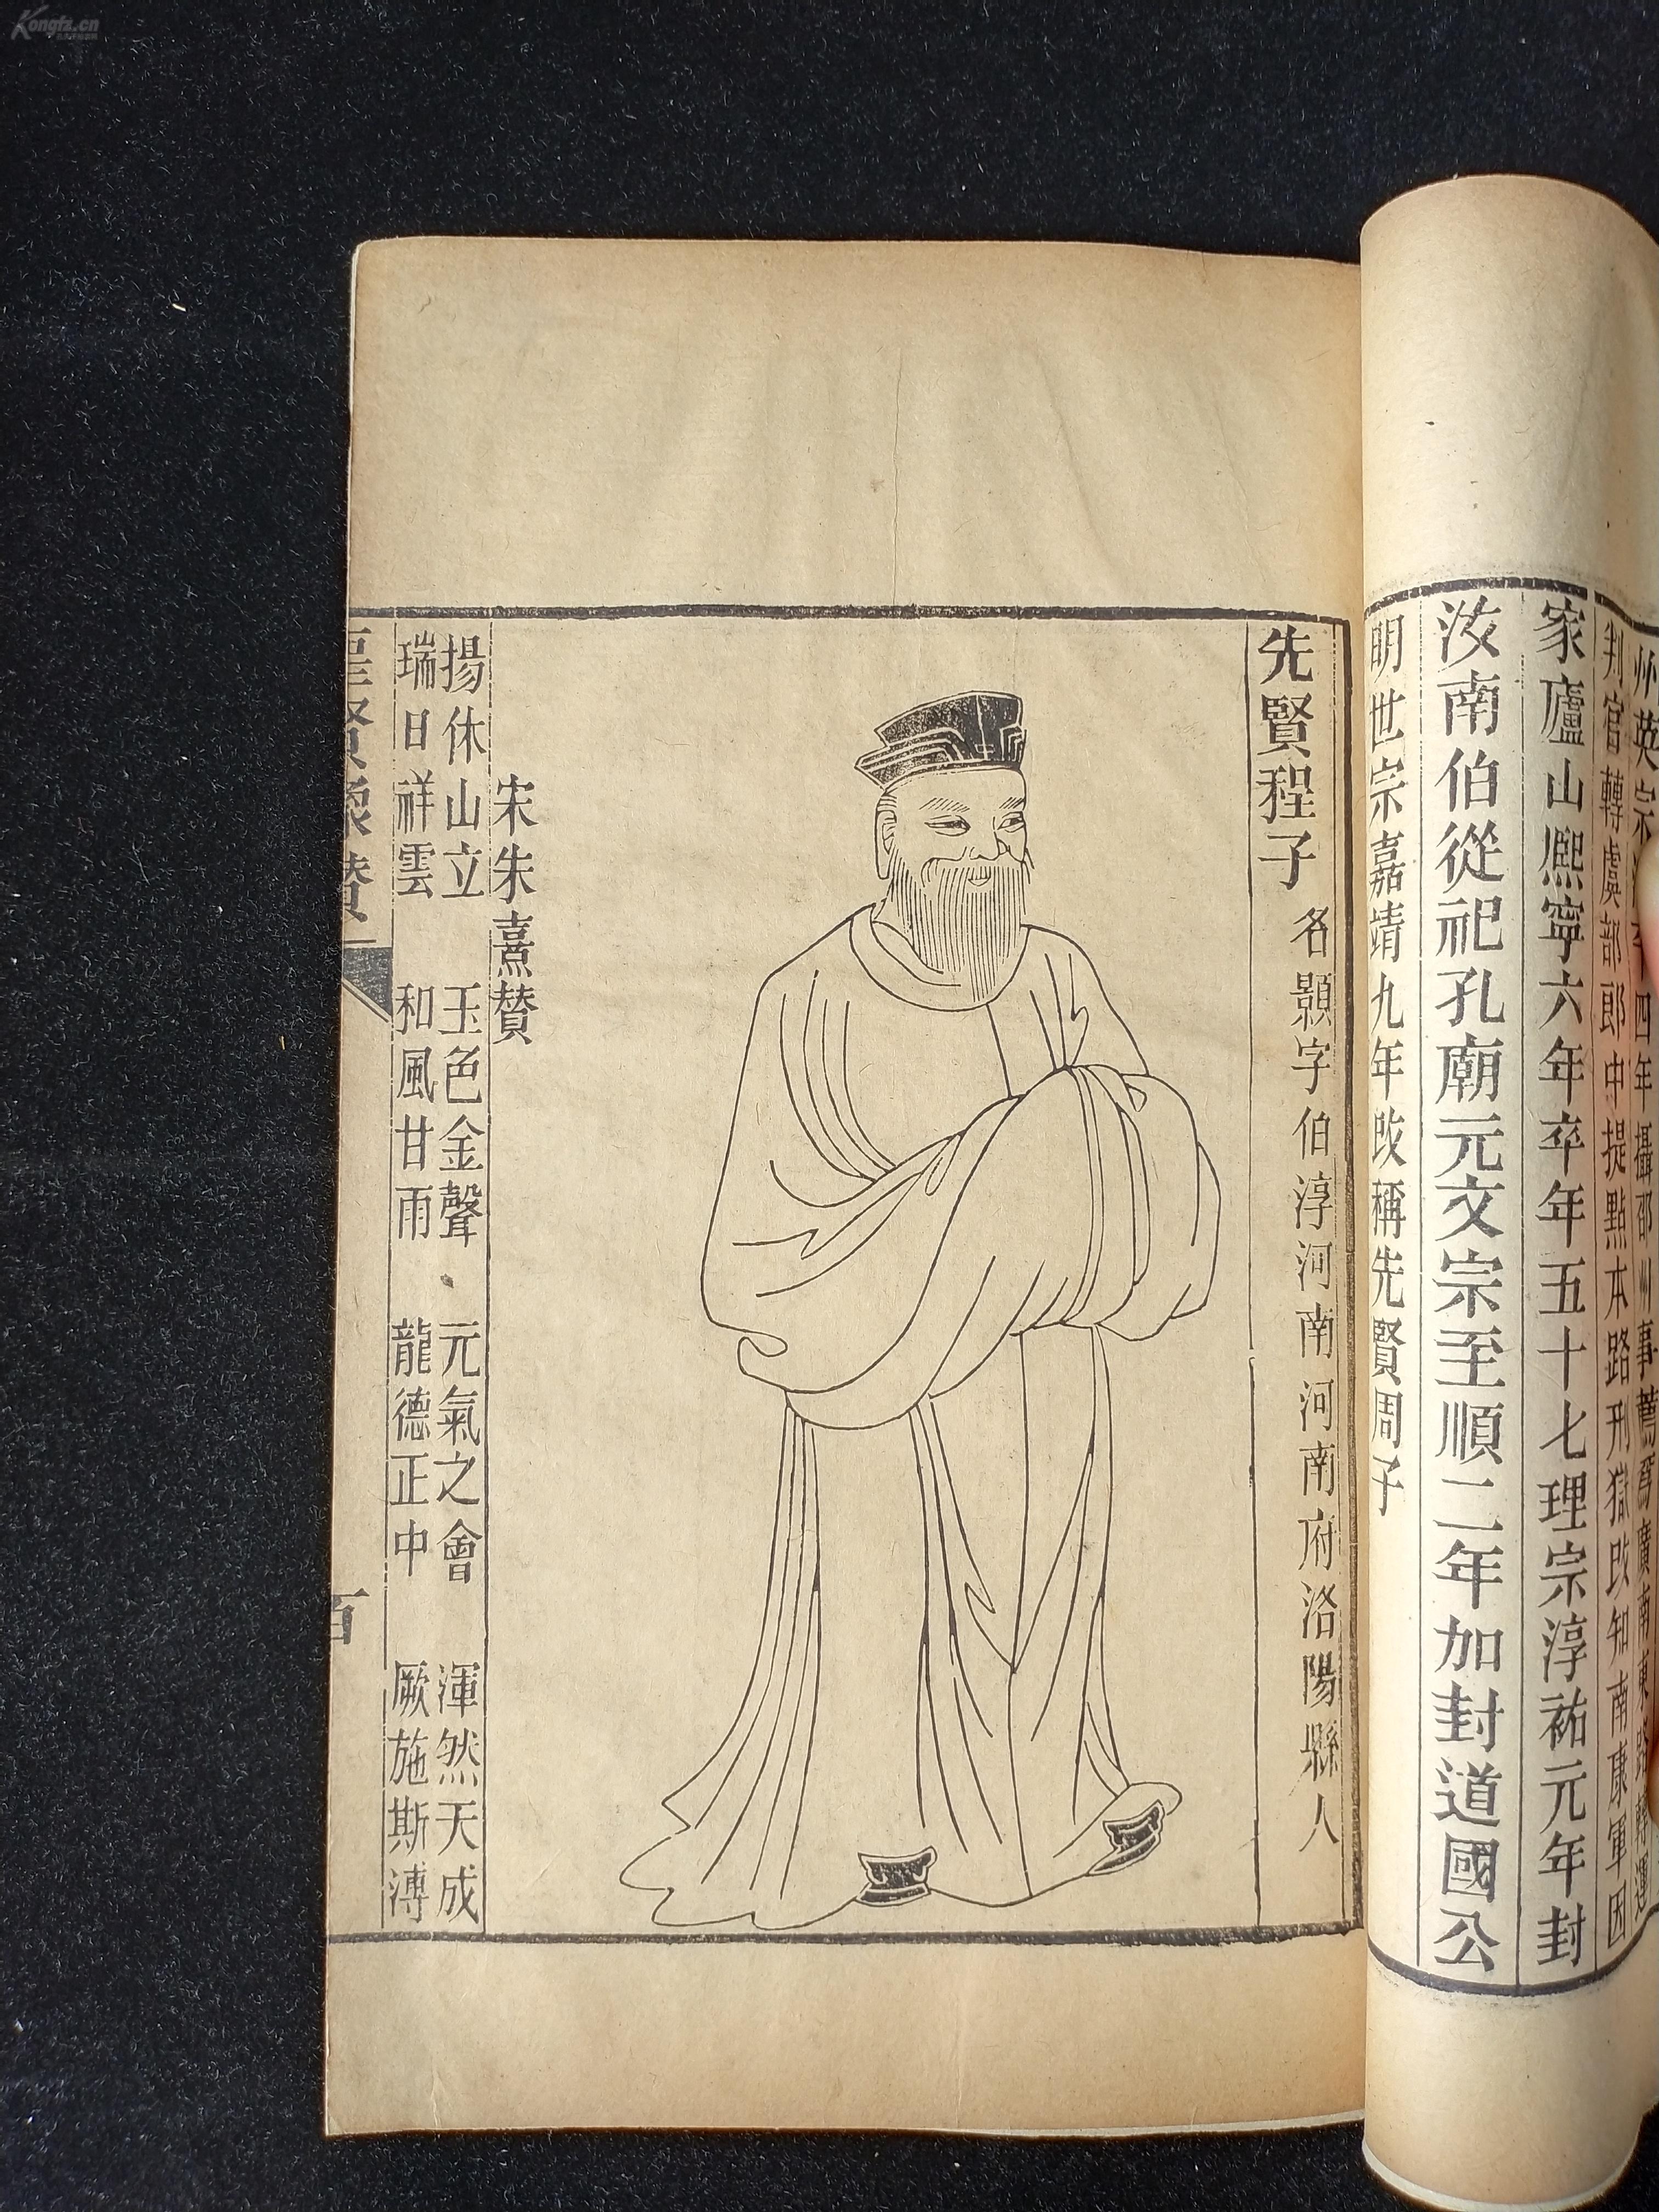 四年攝邵州事薦爲廣南東路轉運
判官轉虞部郎中提點本路刑獄改知南康軍因
家廬山熙寧六年卒年五十七理宗淳祐元年封
汝南伯從祀孔廟元文宗至順二年加封道國公
明世宗嘉靖九年改稱先賢周子
先賢程子 名顥字伯淳河南河南府洛陽縣人
宋朱熹贊
揚休山立 玉色金聲 元氣之會 渾然天成
瑞日祥雲 和風甘雨 龍德正中 厥施斯溥
聖賢像贊
百
Kongfz.cn